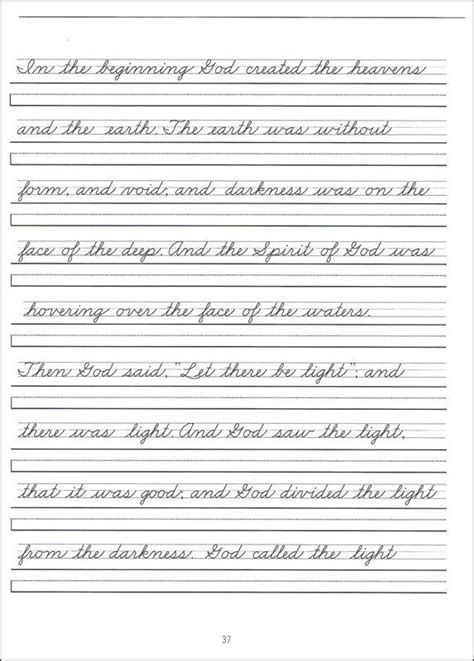 In the beginning God created the heavens
and the earth. The earth was without
form, and void; and darkness was on the
face of the deep. And the Spirit of God was
hovering over the face of the waters.
Then God said, "Let there be light"; and
there was light. And God saw the light,
that it was good; and God divided the light
from the darkness. God called the light
37